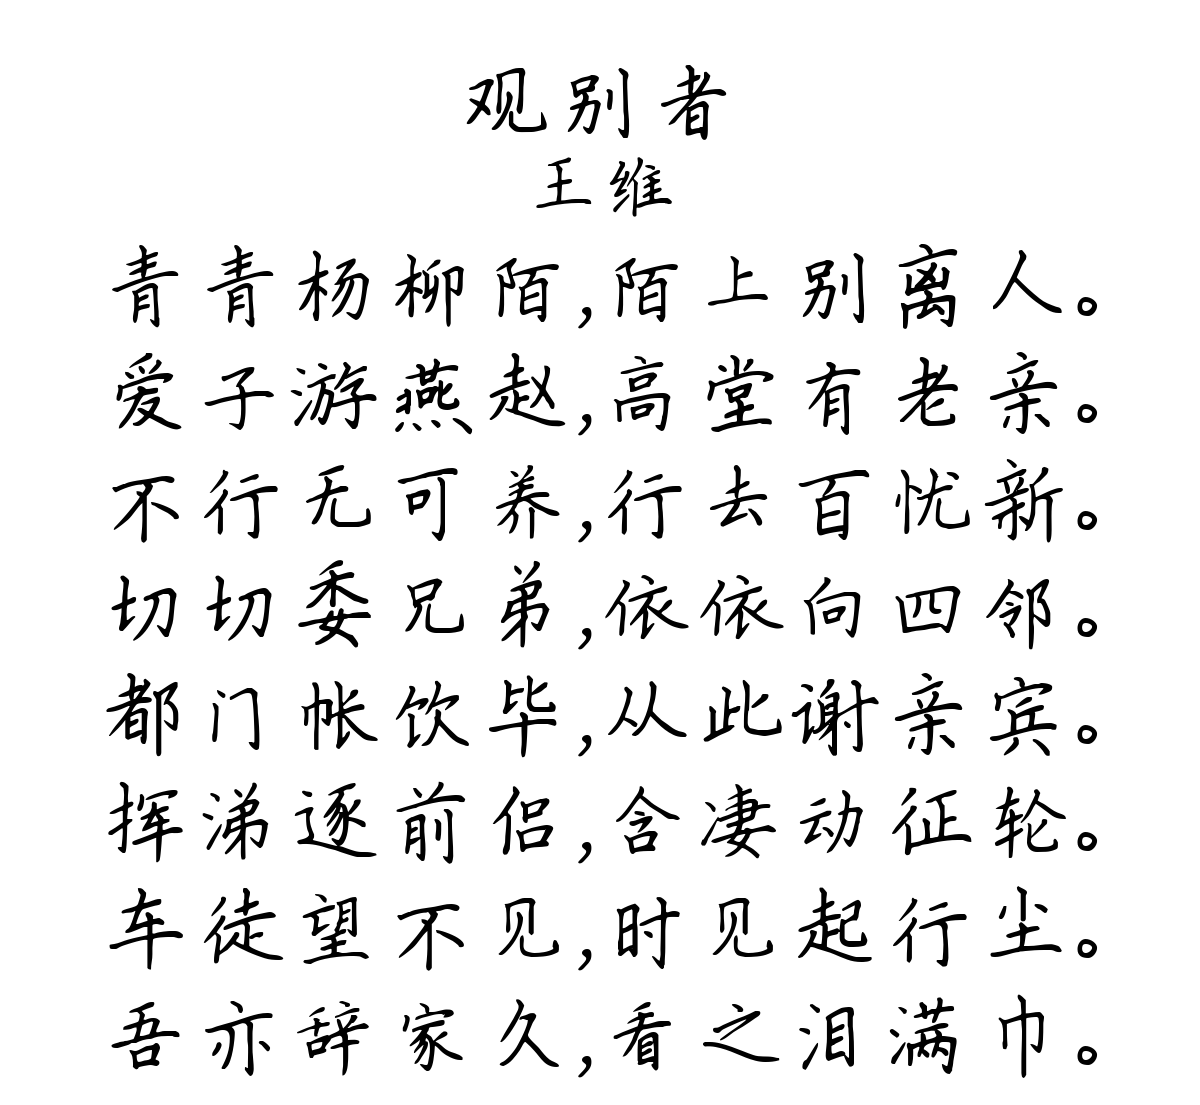 观别者
王维
青青杨柳陌,陌上别离人。
爱子游燕赵,高堂有老亲。
不行无可养,行去百忧新。
切切委兄弟,依依向四邻。
都门帐饮毕,从此谢亲宾。
挥涕逐前侣,含凄动征轮。
车徒望不见,时见起行尘。
吾亦辞家久,看之泪满巾。